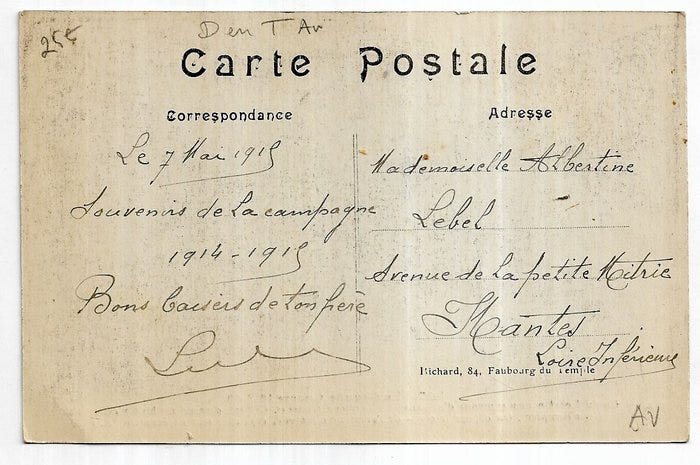 25€
Carte Postale
Correspondance
Adresse
Le 7 Mai 1915
Souvenirs de la campagne
1914-1915
Bons baisers de ton père
Mademoiselle Albertine
Lebel
Avenue de la petite Mitrie
Nantes
Loire Inférieure
Richard, 84, Faubourg du Temple
AV